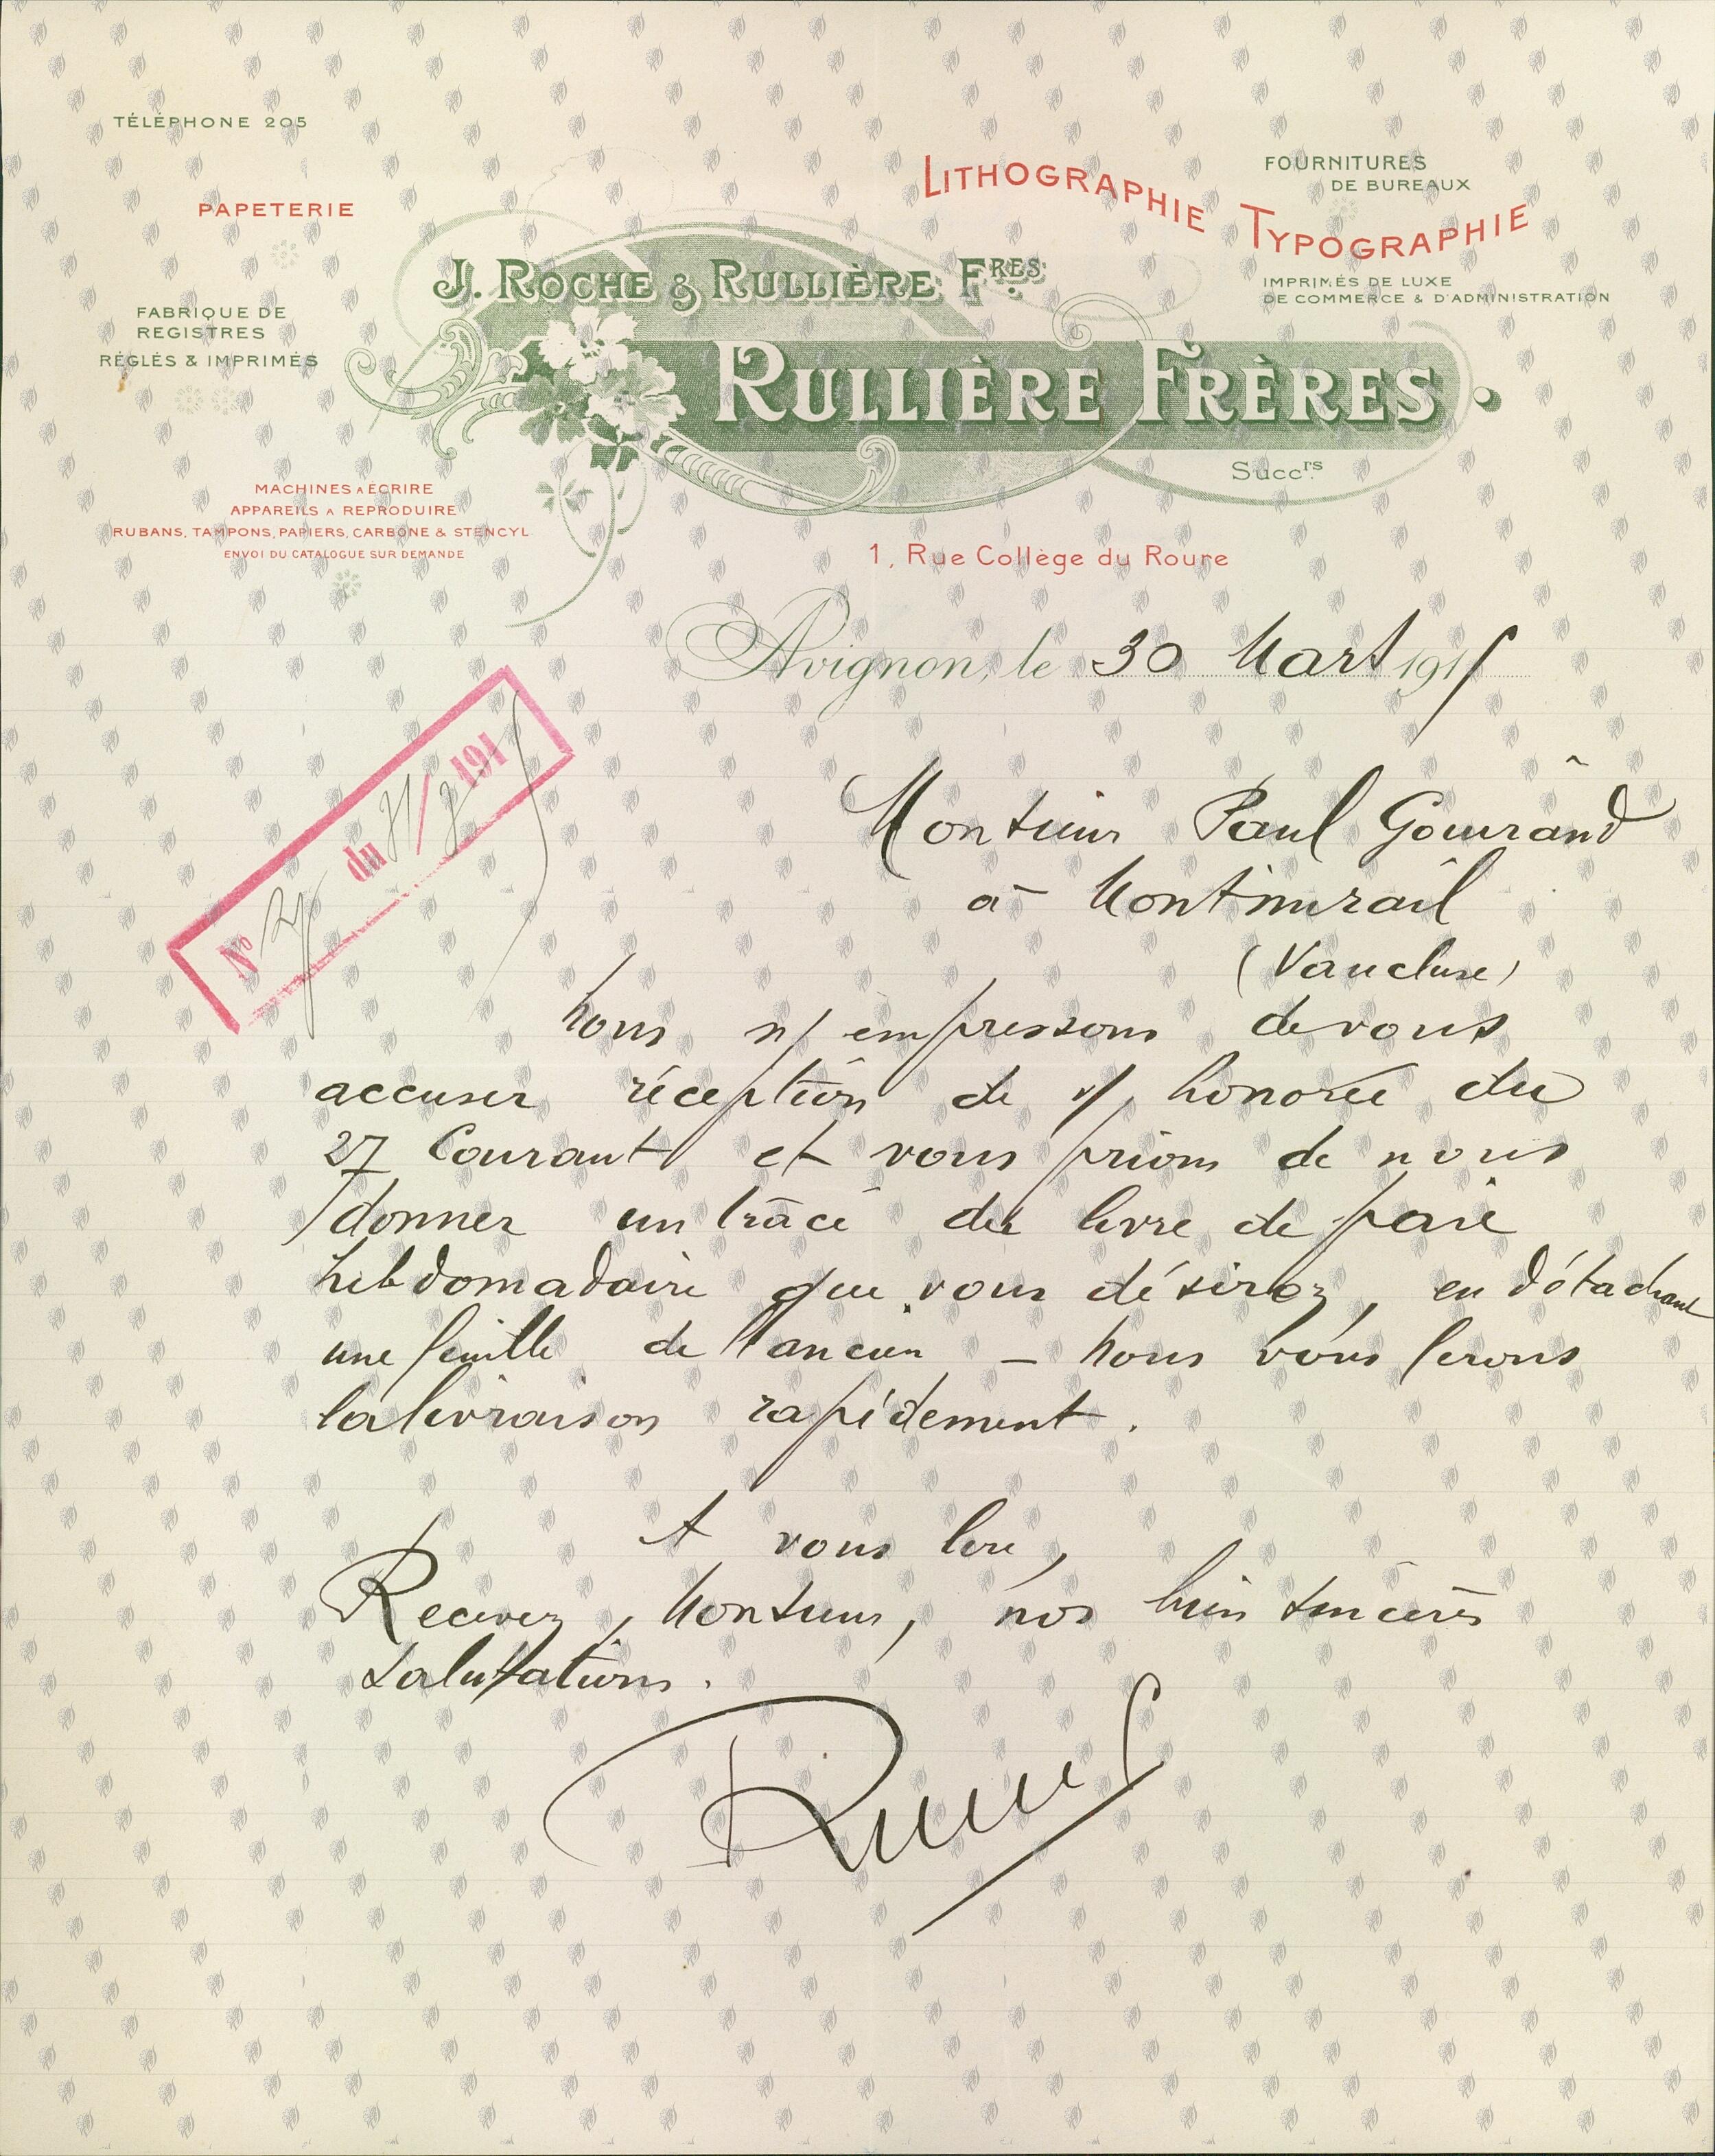 TÉLÉPHONE 205
PAPETERIE
FABRIQUE DE
REGISTRES
RÉGLÉS & IMPRIMÉS
MACHINES A ÉCRIRE
APPAREILS A REPRODUIRE
RUBANS, TAMPONS, PAPIERS, CARBONE & STENCYL
ENVOI DU CATALOGUE SUR DEMANDE
LITHOGRAPHIE TYPOGRAPHIE
FOURNITURES
DE BUREAUX
IMPRIMÉS DE LUXE
DE COMMERCE & D'ADMINISTRATION
J. ROCHE & RULLIÈRE FRES.
RULLIÈRE FRÈRES.
Succrs.
1, Rue Collège du Roure
Avignon, le 30 Mars 1915
No du 31/3 1915
Monsieur Paul Gourand
à Montmirail
(Vaucluse)
Nous n/ empressons de vous
accuser réception de v/ honorée du
27 Courant et vous prions de nous
donner un tracé du livre de paie
hebdomadaire que vous désirez, en détachant
une feuille de l'ancien - Nous vous ferons
la livraison rapidement.
A vous lire,
Recevez, Monsieur, nos bien sincères
salutations.